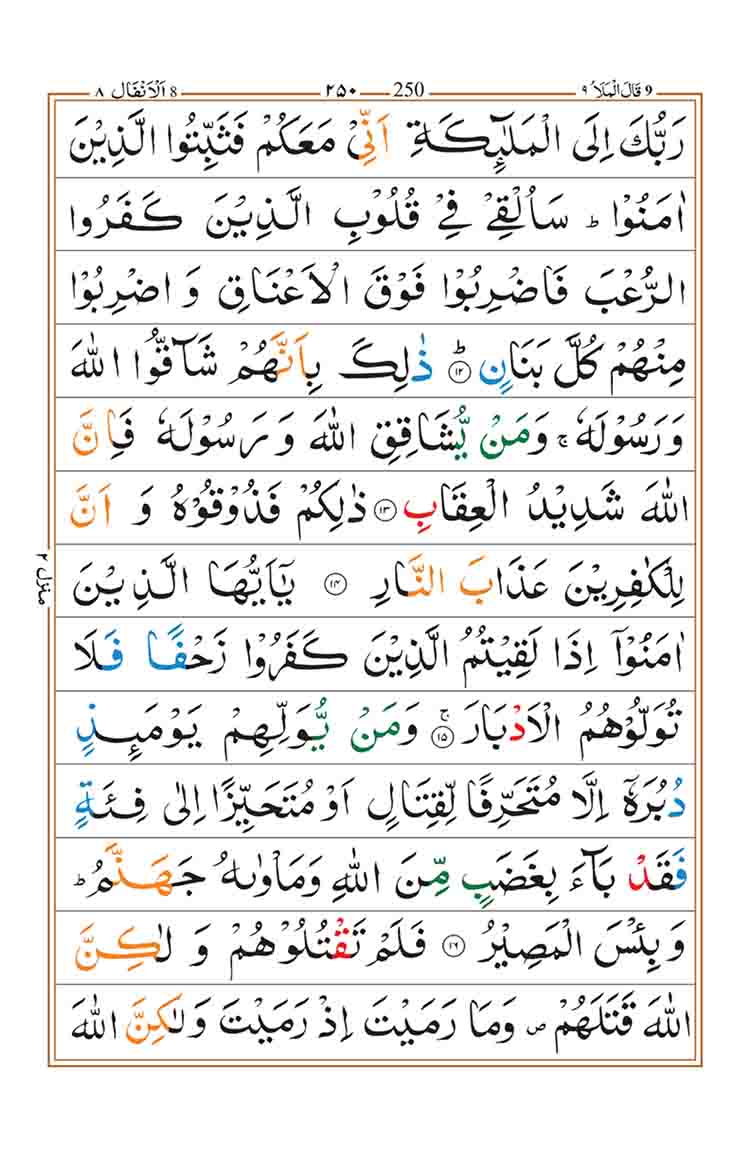 9 قَالَ الْمَلَاُ ٩ 250 ٢٥٠ 8 اَلْاَنْفَال ٨
رَبُّكَ اِلَى الْمَلٰٓئِكَةِ اَنِّىْ مَعَكُمْ فَثَبِّتُوا الَّذِيْنَ
اٰمَنُوْا ؕ سَاُلْقِىْ فِىْ قُلُوْبِ الَّذِيْنَ كَفَرُوا
الرُّعْبَ فَاضْرِبُوْا فَوْقَ الْاَعْنَاقِ وَ اضْرِبُوْا
مِنْهُمْ كُلَّ بَنَانٍ ؕ ﴿١٢﴾ ذٰلِكَ بِاَنَّهُمْ شَآقُّوا اللّٰهَ
وَ رَسُوْلَهٗ ۚ وَمَنْ يُّشَاقِقِ اللّٰهَ وَ رَسُوْلَهٗ فَاِنَّ
اللّٰهَ شَدِيْدُ الْعِقَابِ ﴿١٣﴾ ذٰلِكُمْ فَذُوْقُوْهُ وَ اَنَّ
لِلْكٰفِرِيْنَ عَذَابَ النَّارِ ﴿١٤﴾ يٰۤاَيُّهَا الَّذِيْنَ
اٰمَنُوْۤا اِذَا لَقِيْتُمُ الَّذِيْنَ كَفَرُوْا زَحْفًا فَلَا
تُوَلُّوْهُمُ الْاَدْبَارَ ۚ ﴿١٥﴾ وَمَنْ يُّوَلِّهِمْ يَوْمَئِذٍ
دُبُرَهٗۤ اِلَّا مُتَحَرِّفًا لِّقِتَالٍ اَوْ مُتَحَيِّزًا اِلٰى فِئَةٍ
فَقَدْ بَآءَ بِغَضَبٍ مِّنَ اللّٰهِ وَمَاْوٰٮهُ جَهَنَّمُ ؕ
وَ بِئْسَ الْمَصِيْرُ ﴿١٦﴾ فَلَمْ تَقْتُلُوْهُمْ وَ لٰكِنَّ
اللّٰهَ قَتَلَهُمْ ص وَمَا رَمَيْتَ اِذْ رَمَيْتَ وَلٰكِنَّ اللّٰهَ
منزل ٢